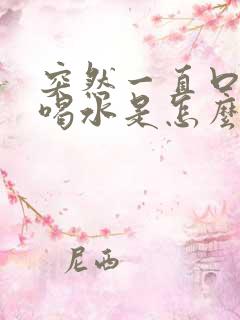 突然一直口
喝水是怎麼
尼西